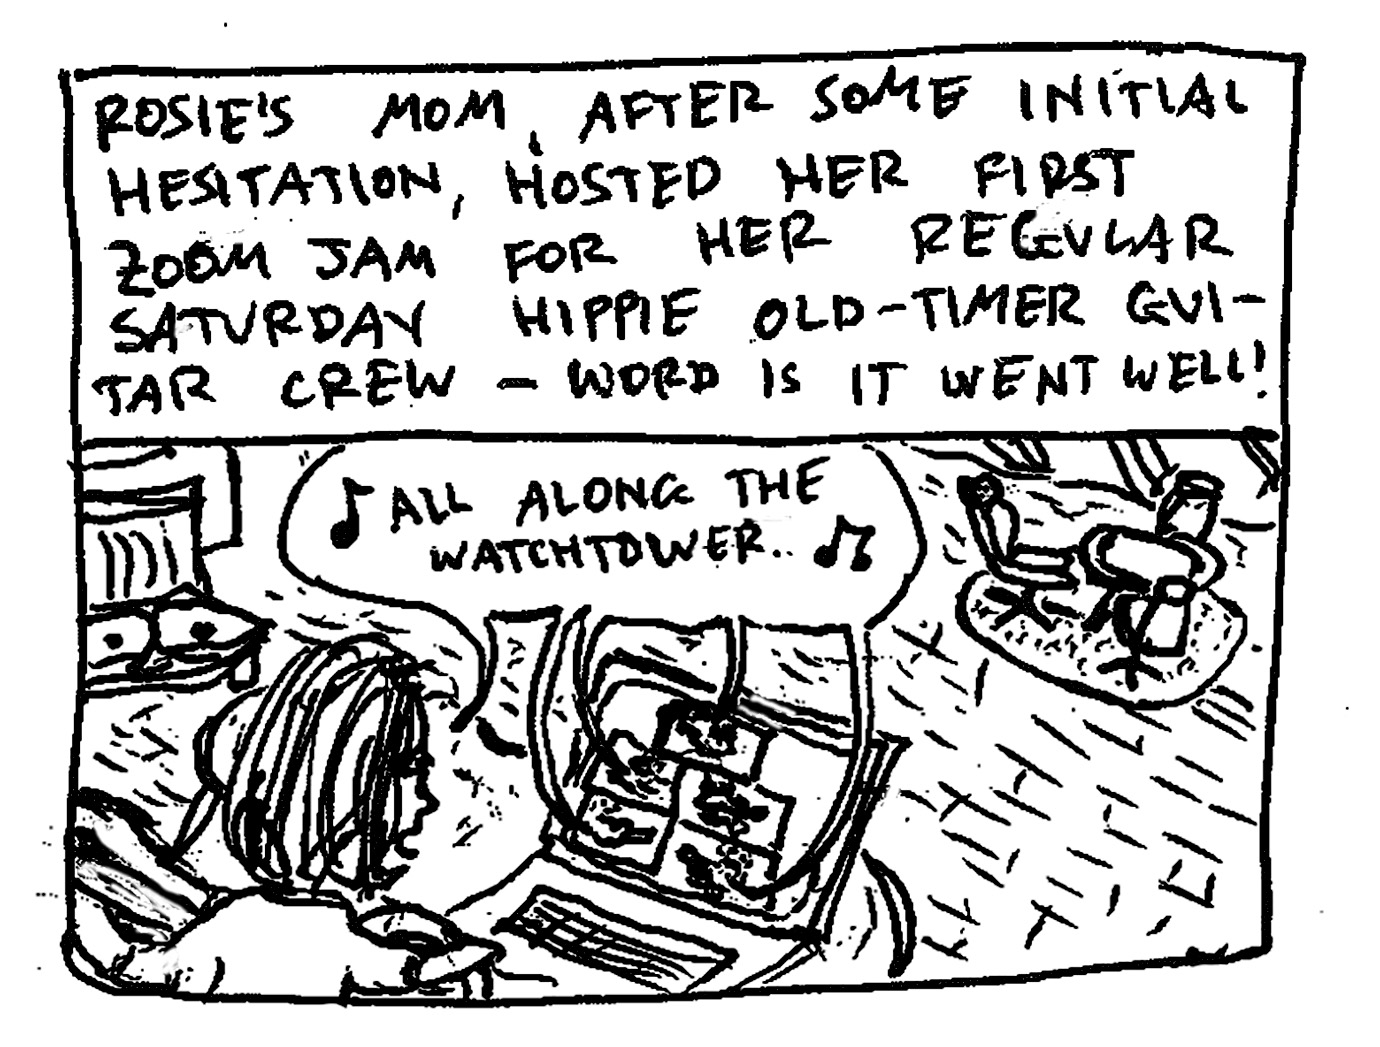 ROSIE'S MOM, AFTER SOME INITIAL
HESITATION, HOSTED HER FIRST
ZOOM JAM FOR HER REGULAR
SATURDAY HIPPIE OLD-TIMER GUI-
TAR CREW – WORD IS IT WENT WELL!
♪ ALL ALONG THE
WATCHTOWER.. ♫